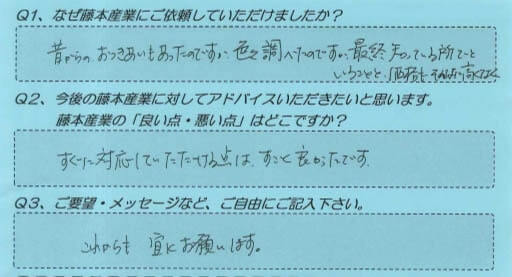 Q1、なぜ藤本産業にご依頼していただけましたか？
昔からのおつきあいもあったのですが、色々調べたのですが、最終知っている所でと
いうことと、価格もそんなに高くなく
Q2、今後の藤本産業に対してアドバイスいただきたいと思います。
藤本産業の「良い点・悪い点」はどこですか？
すぐに対応していただける点は、すごく良かったです。
Q3、ご要望・メッセージなど、ご自由にご記入下さい。
これからも宜しくお願いします。